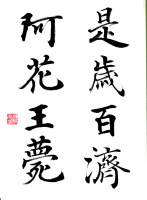 是歳百濟
阿花王薨